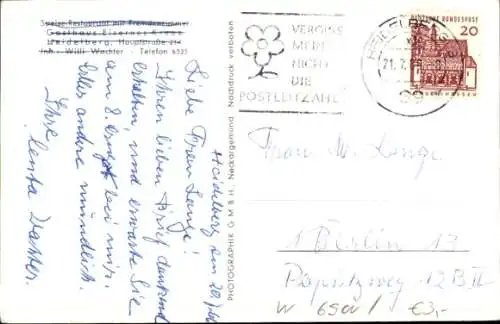 Speise-Restaurant mit Fremdenzimmer
Gasthaus Eisernes Kreuz
Heidelberg, Hauptstraße
Inh. Willi Wachter - Telefon
Heidelberg am 20.
Liebe Frau Lange!
Ihren lieben Brief dankend
erhalten, und erwarte Sie
am 8. bei mir.
Alles andere mündlich.
Ihre
PHOTOGRAPHIK G.M.B.H., Neckargemünd Nachdruck verboten
VERGISS
MEIN
NICHT
DIE
POSTLEITZAHL
HEIDELBERG
21.7.
DEUTSCHE BUNDESPOST
20
Frau M. Lange
1 Berlin 13
12 B II
W €3,-